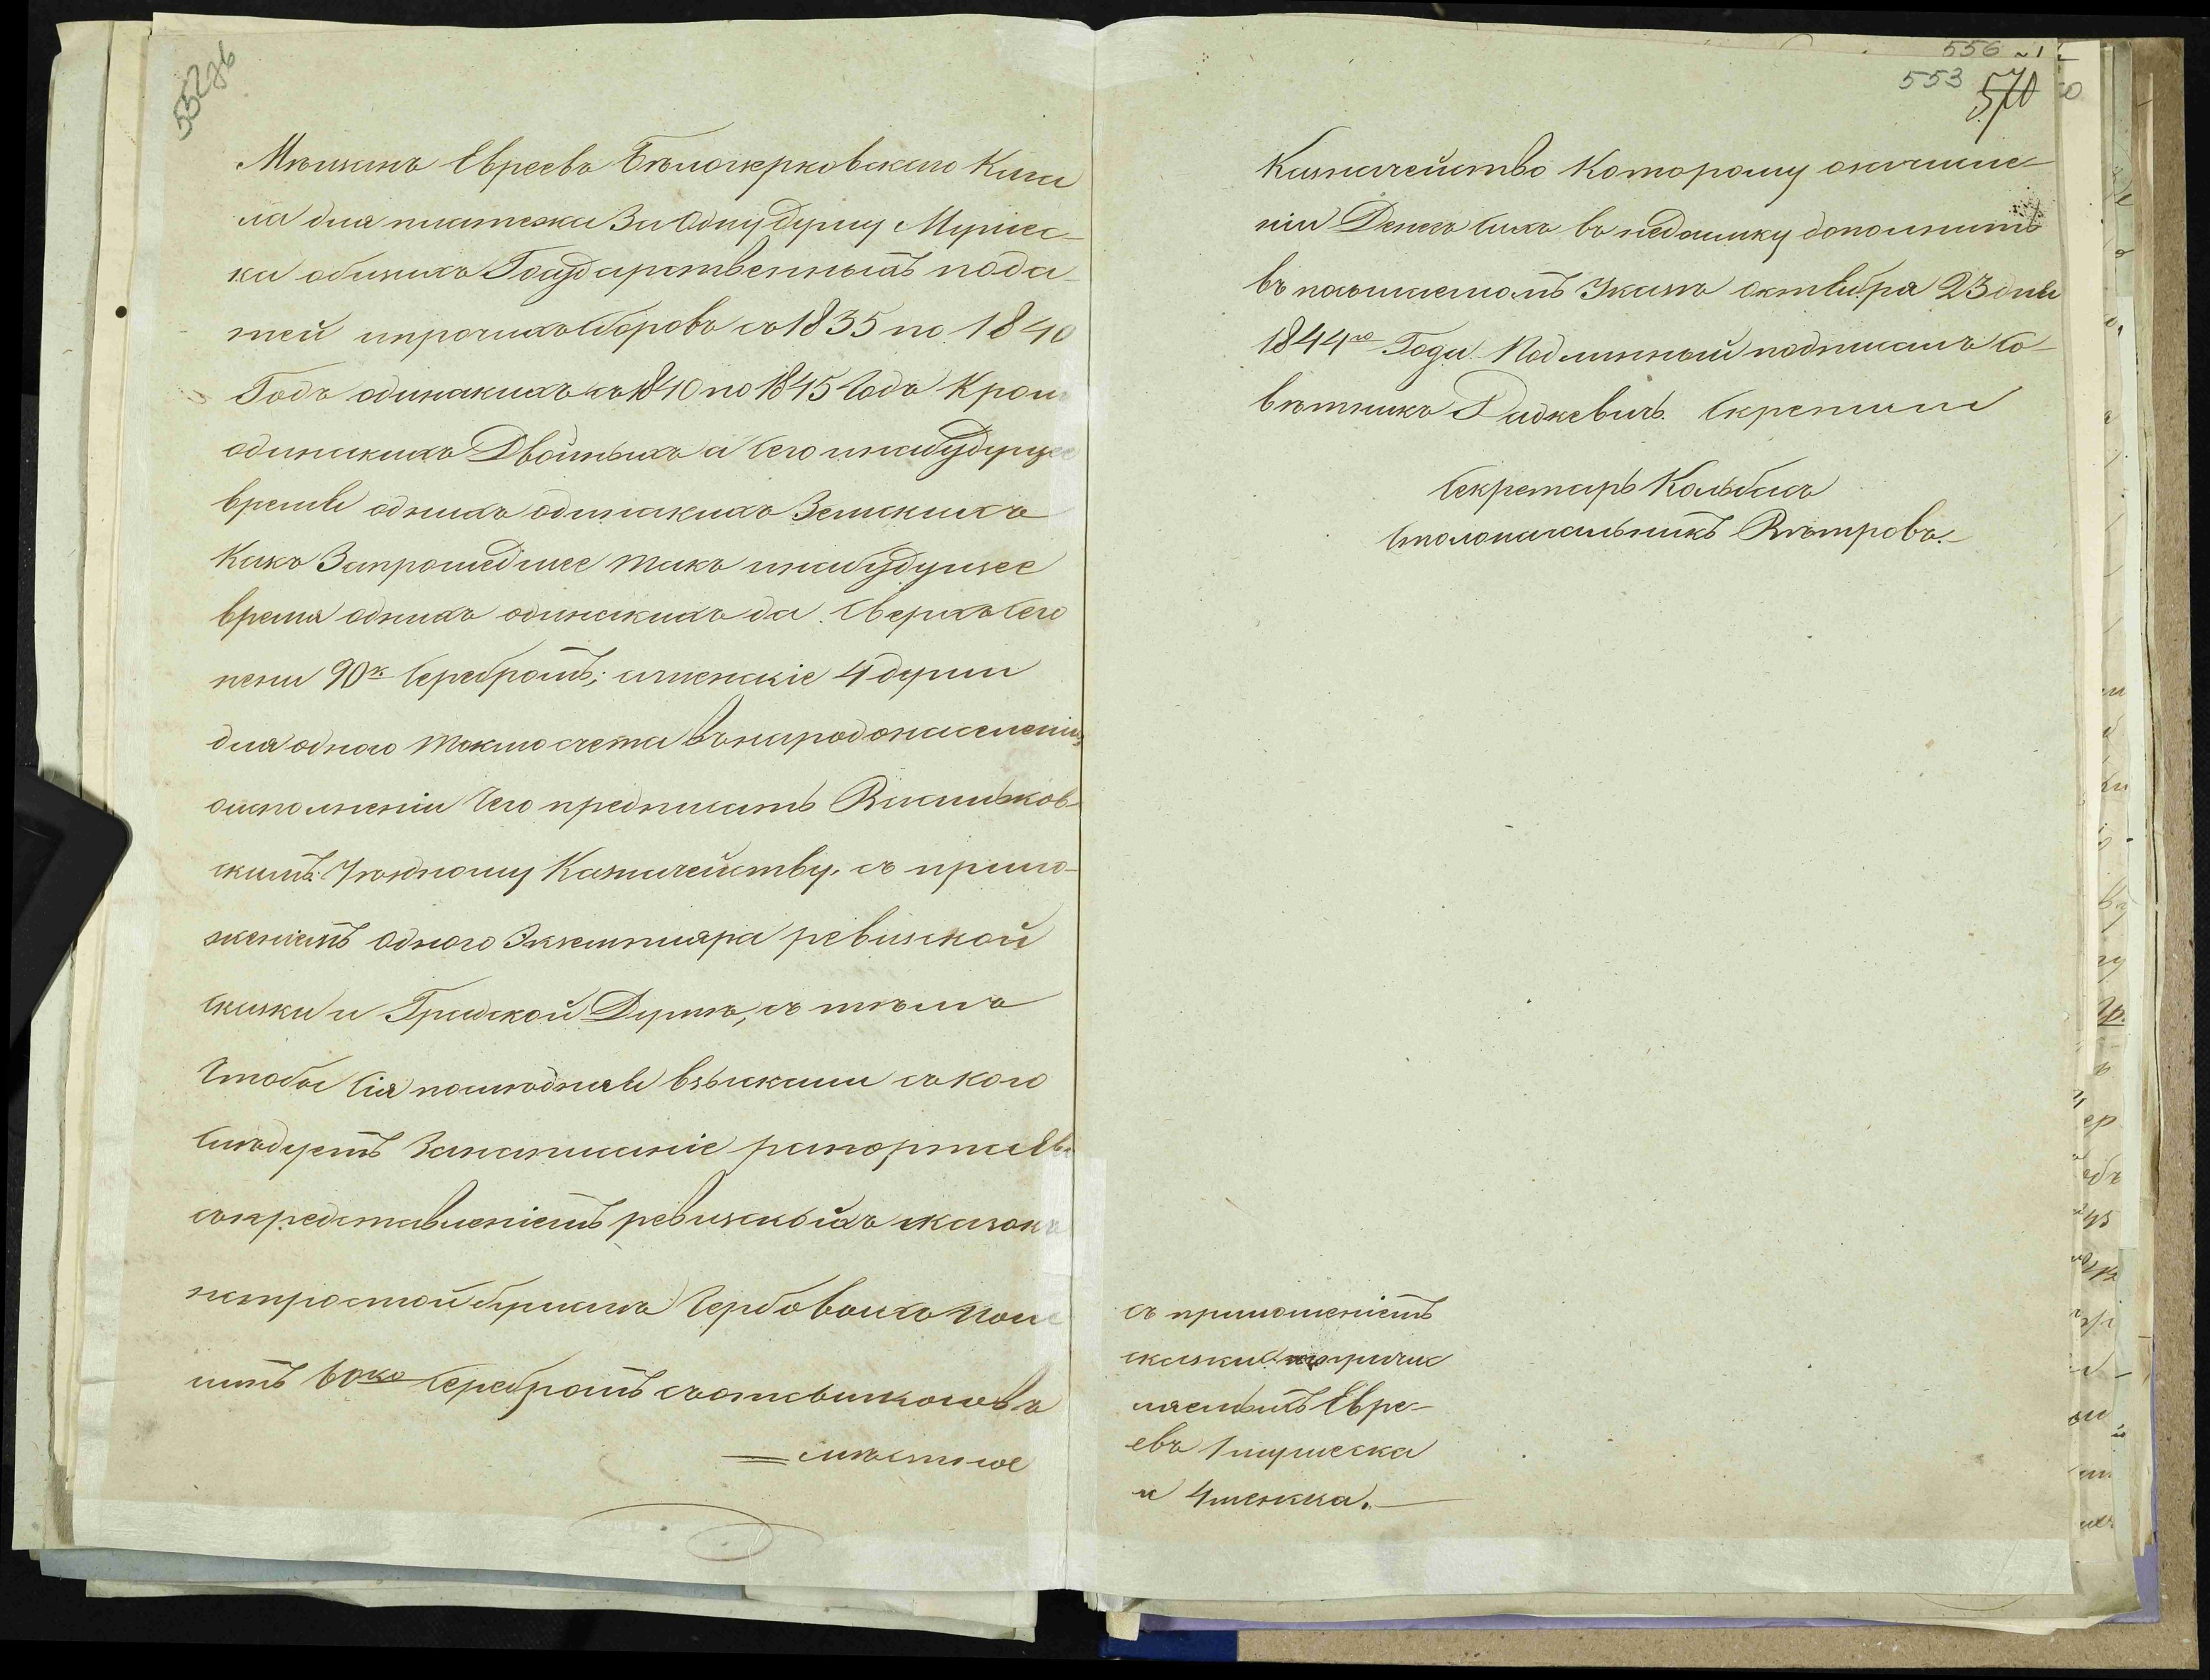 552 об
Мѣщанъ Евреевъ Бѣлоцерковскаго Кага
ла для платежа За Одну душу Мужес-
ка общихъ Государственныхъ пода-
тей ипрочихъ Сборовъ съ 1835 по 1840
Годъ одинакихъ съ 1840 по 1845 Годъ Кром
одинакихъ Двойныхъ а Сего инабудущее
время однихъ одинакихъ Земскихъ
Какъ Запрошедшее такъ инабудущее
время однихъ одинакихъ да Сверхъ Сего
пени 90к Серебромъ; аженскіе 4 души
для одного токмо счета внародонаселеніи,
оисполненіи Чего предписать Васильков-
скимъ: Уѣздному Казначейству, съ прило-
женіемъ Одного Экземпляра ревизской
Сказки и Градской Думѣ, съ тѣмъ
Чтобы Сія послѣдняя взыскали съкого
Слѣдуетъ Занаписаніе рапорта
съпредставленіемъ ревизскихъ сказокъ
напростой бумагѣ Гербовыхъ пош
линъ 60ко Серебромъ
мѣстное
556
553 570
Казначейство Которому озачисле-
ніи Денегъ Сихъ въ недоимку дополнить
въ посылаемомъ Указѣ Октября 23 дня
1844го Года. Подлинный подписалъ Со-
вѣтникъ Радкевичъ. Скрепили
Секретарь Кольбасъ
Столоначальникъ Вѣтровъ.
съ приложеніемъ
сказки причис
ляемыхъ Евре-
евъ 1 мужеска
и 4 женска.